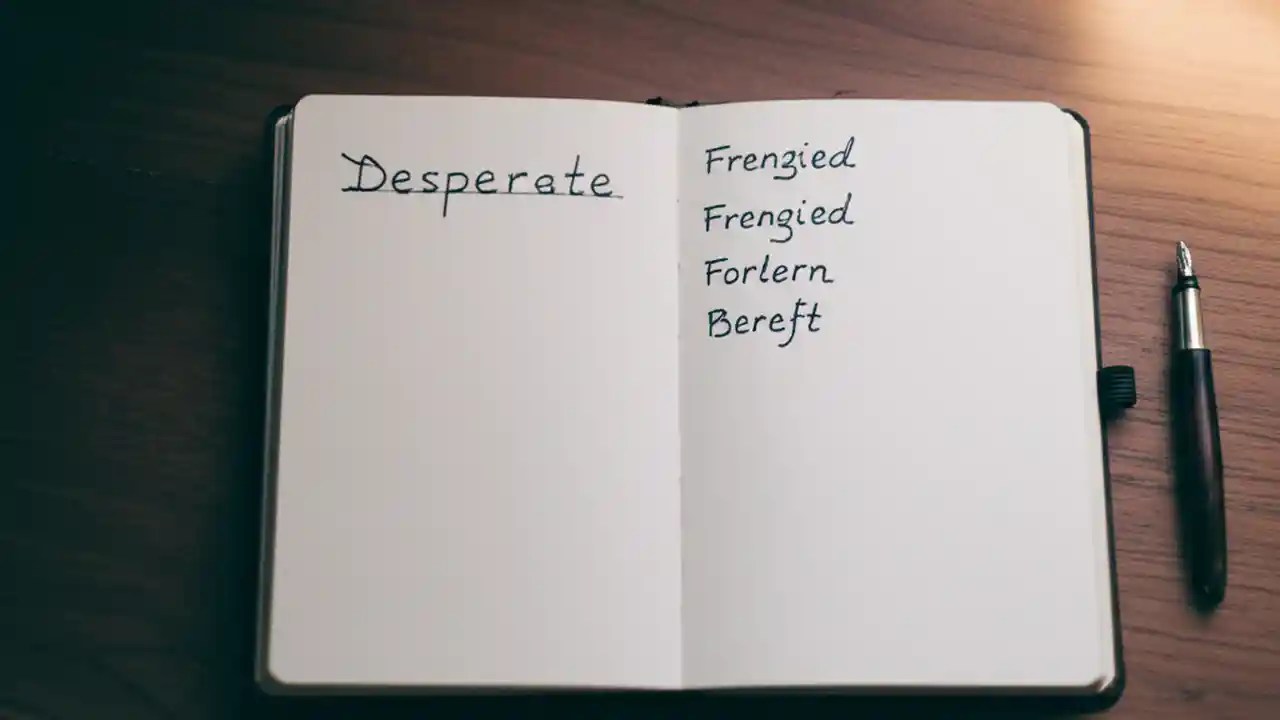 Desperate
Frenzied
Frengied
Forlern
Bereft